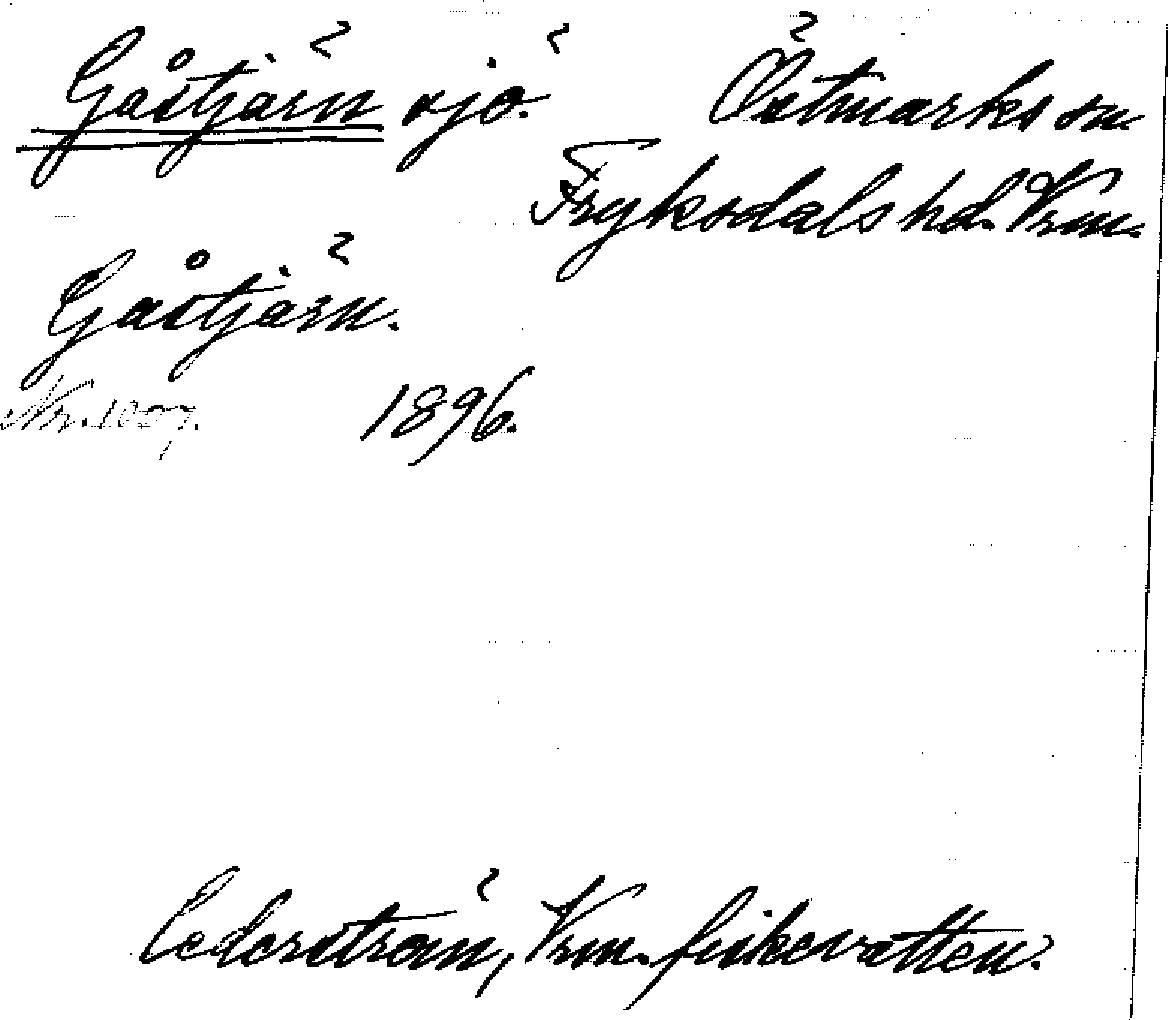 Gåstjärn sjö. Östmarks sn.
Fryksdals hd. Vrm.
Gåstjärn.
Nr. 1007. 1896.
Cederström, Vrm. fiskevatten.